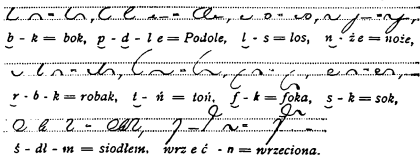 b - k = bok, p - d - l e = Podole, l - s = los, n - że = noże,
r - b - k = robak, t - ń = toń, f - k = foka, s - k = sok,
ś - dł - m = siodłem, wrz e ć - n = wrzeciona.